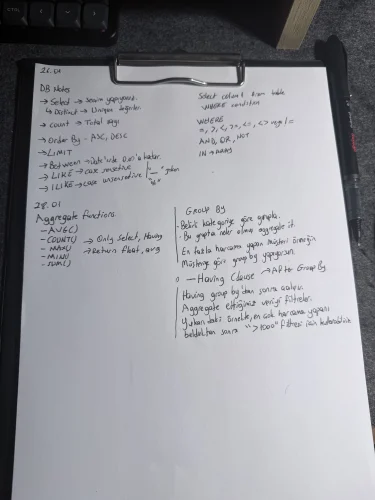 26.01
DB Notes
→ Select → seçim yapıyorsun.
↳ Distinct → Unique değerler.
→ Count → Total sayı
→ Order By - ASC, DESC
→ LIMIT
→ Between →
→ LIKE → case sensitive
→ ILIKE → case unsensitive
"_" "%"
Select column from table
WHERE condition
WHERE
AND, OR, NOT
IN → ARRAY
28.01
Aggregate functions
- AVG()
- COUNT() → Only Select, Having
- MAX() → Return float, avg
- MIN()
- SUM()
GROUP BY
- Belirli kategoriye göre grupla.
- Bu gruptan neler olmuş aggregate it.
En fazla harcama yapan müşteri örneğin
Müşteriye göre group by yapıyorsun.
— Having Clause → After Group By
Having group by'dan sonra
Aggregate ettiğimiz veriyi filtreler.
Yukarıdaki örnekte, en çok harcama yapanı
bulduktan sonra ">1000" filtresi için